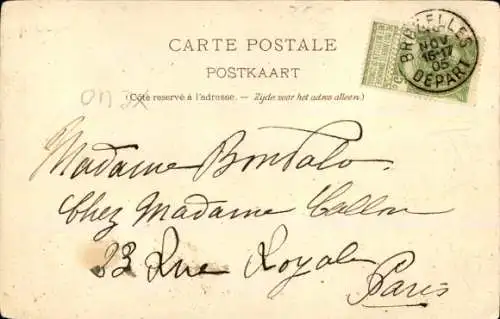 CARTE POSTALE
POSTKAART
(Côté reservé à l'adresse. — Zijde voor het adres alleen.)
BRUXELLES
NOV
16-17
05
DEPART
Madame Bontalo
Chez Madame Callon
23 Rue Royale
Paris